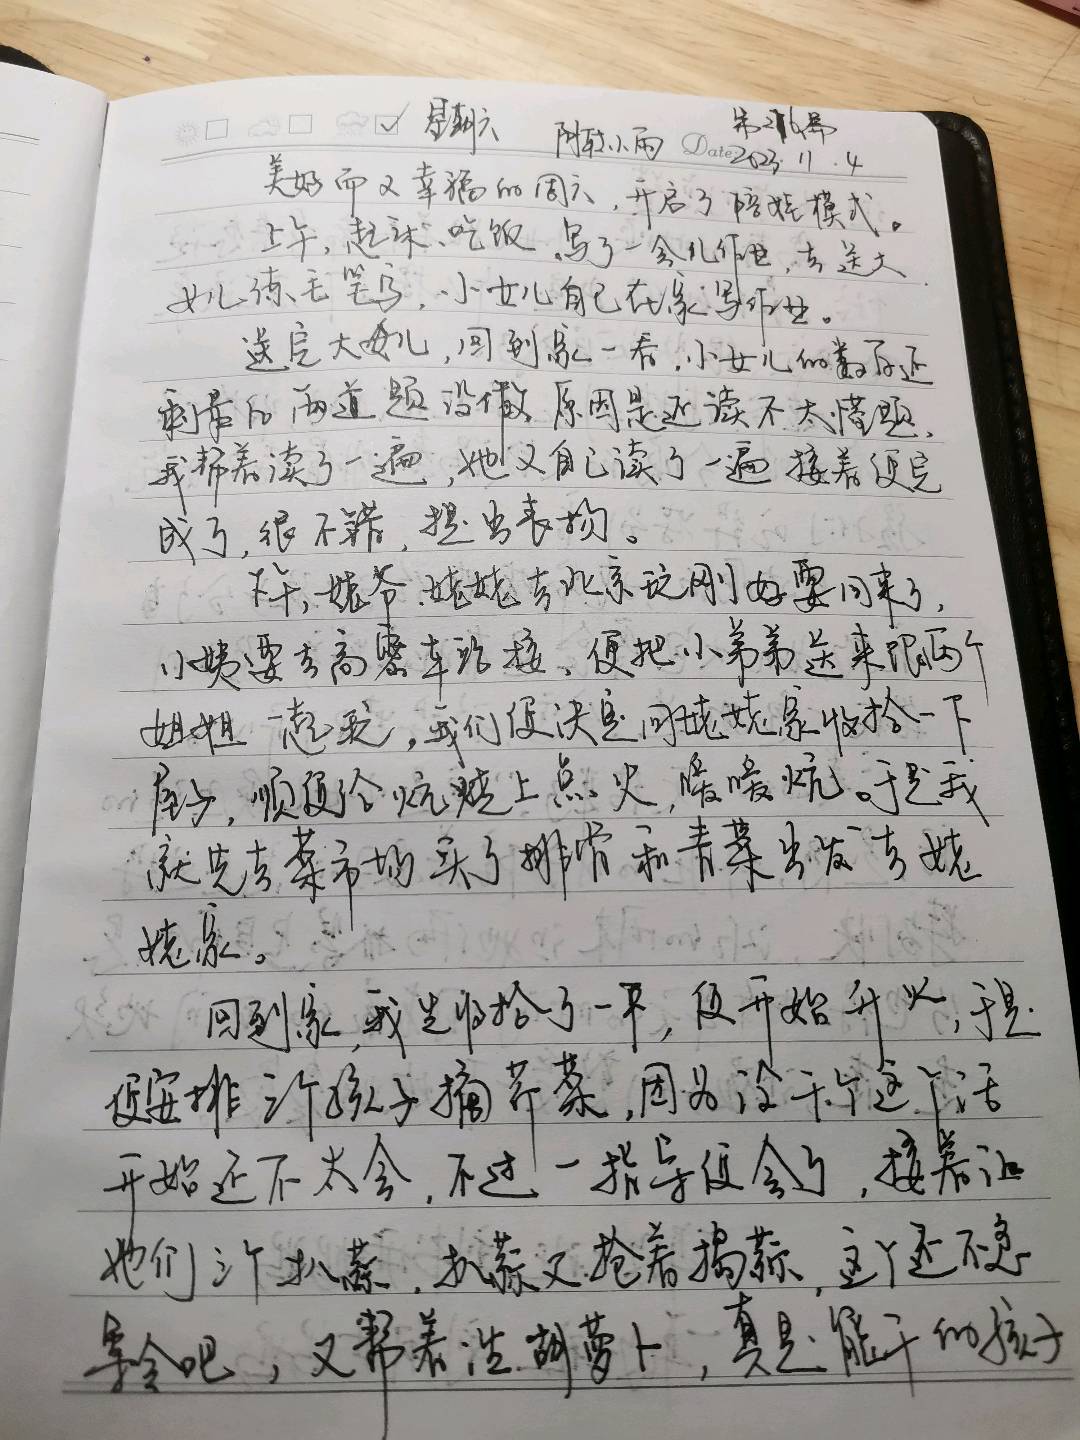 星期六 阴转小雨 Date 2023.11.4
美好而又幸福的周六,开启了陪娃模式。
上午,起床、吃饭、写了一会儿作业,去送大
女儿练毛笔写,小女儿自己在家写作业。
送完大女儿,回到家一看,小女儿的数学还
剩最后两道题没做,原因是还读不太懂题,
我帮着读了一遍,她又自己读了一遍接着便完
成了,很不错,提出表扬。
下午,姥爷、姥姥去北京玩刚好要回来了,
小姨要去高密车站接,便把小弟弟送来跟两个
姐姐一起玩,我们便决定回姥姥家收拾一下
屋子,顺便给炕烧上点火,暖暖炕。于是我
就先去菜市场买了排骨和青菜出发去姥
姥家。
回到家,我先收拾了一下,便开始升火,于是
便安排三个孩子摘芹菜,因为没干个这个活
开始还不太会,不过一指导便会了,接着让
她们三个扒蒜,扒蒜又抢着捣蒜,这个还不急
会吧,又帮着洗胡萝卜,真是能干的孩子